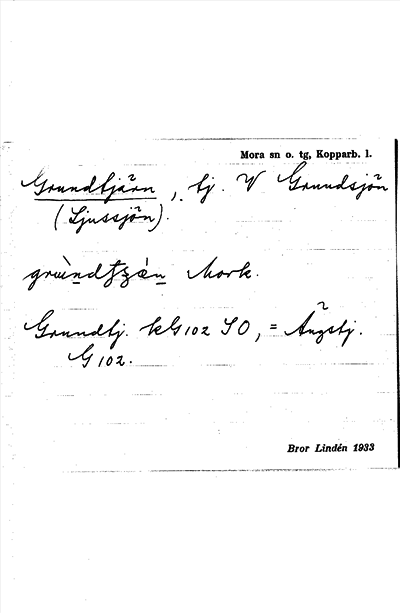 Mora sn o. tg, Kopparb. l.
Grundtjärn, tj. V Grundsjön
(Ljussjön).
Mork.
Grundtj. kG102 SO, = Ängstj.
G102.
Bror Lindén 1933